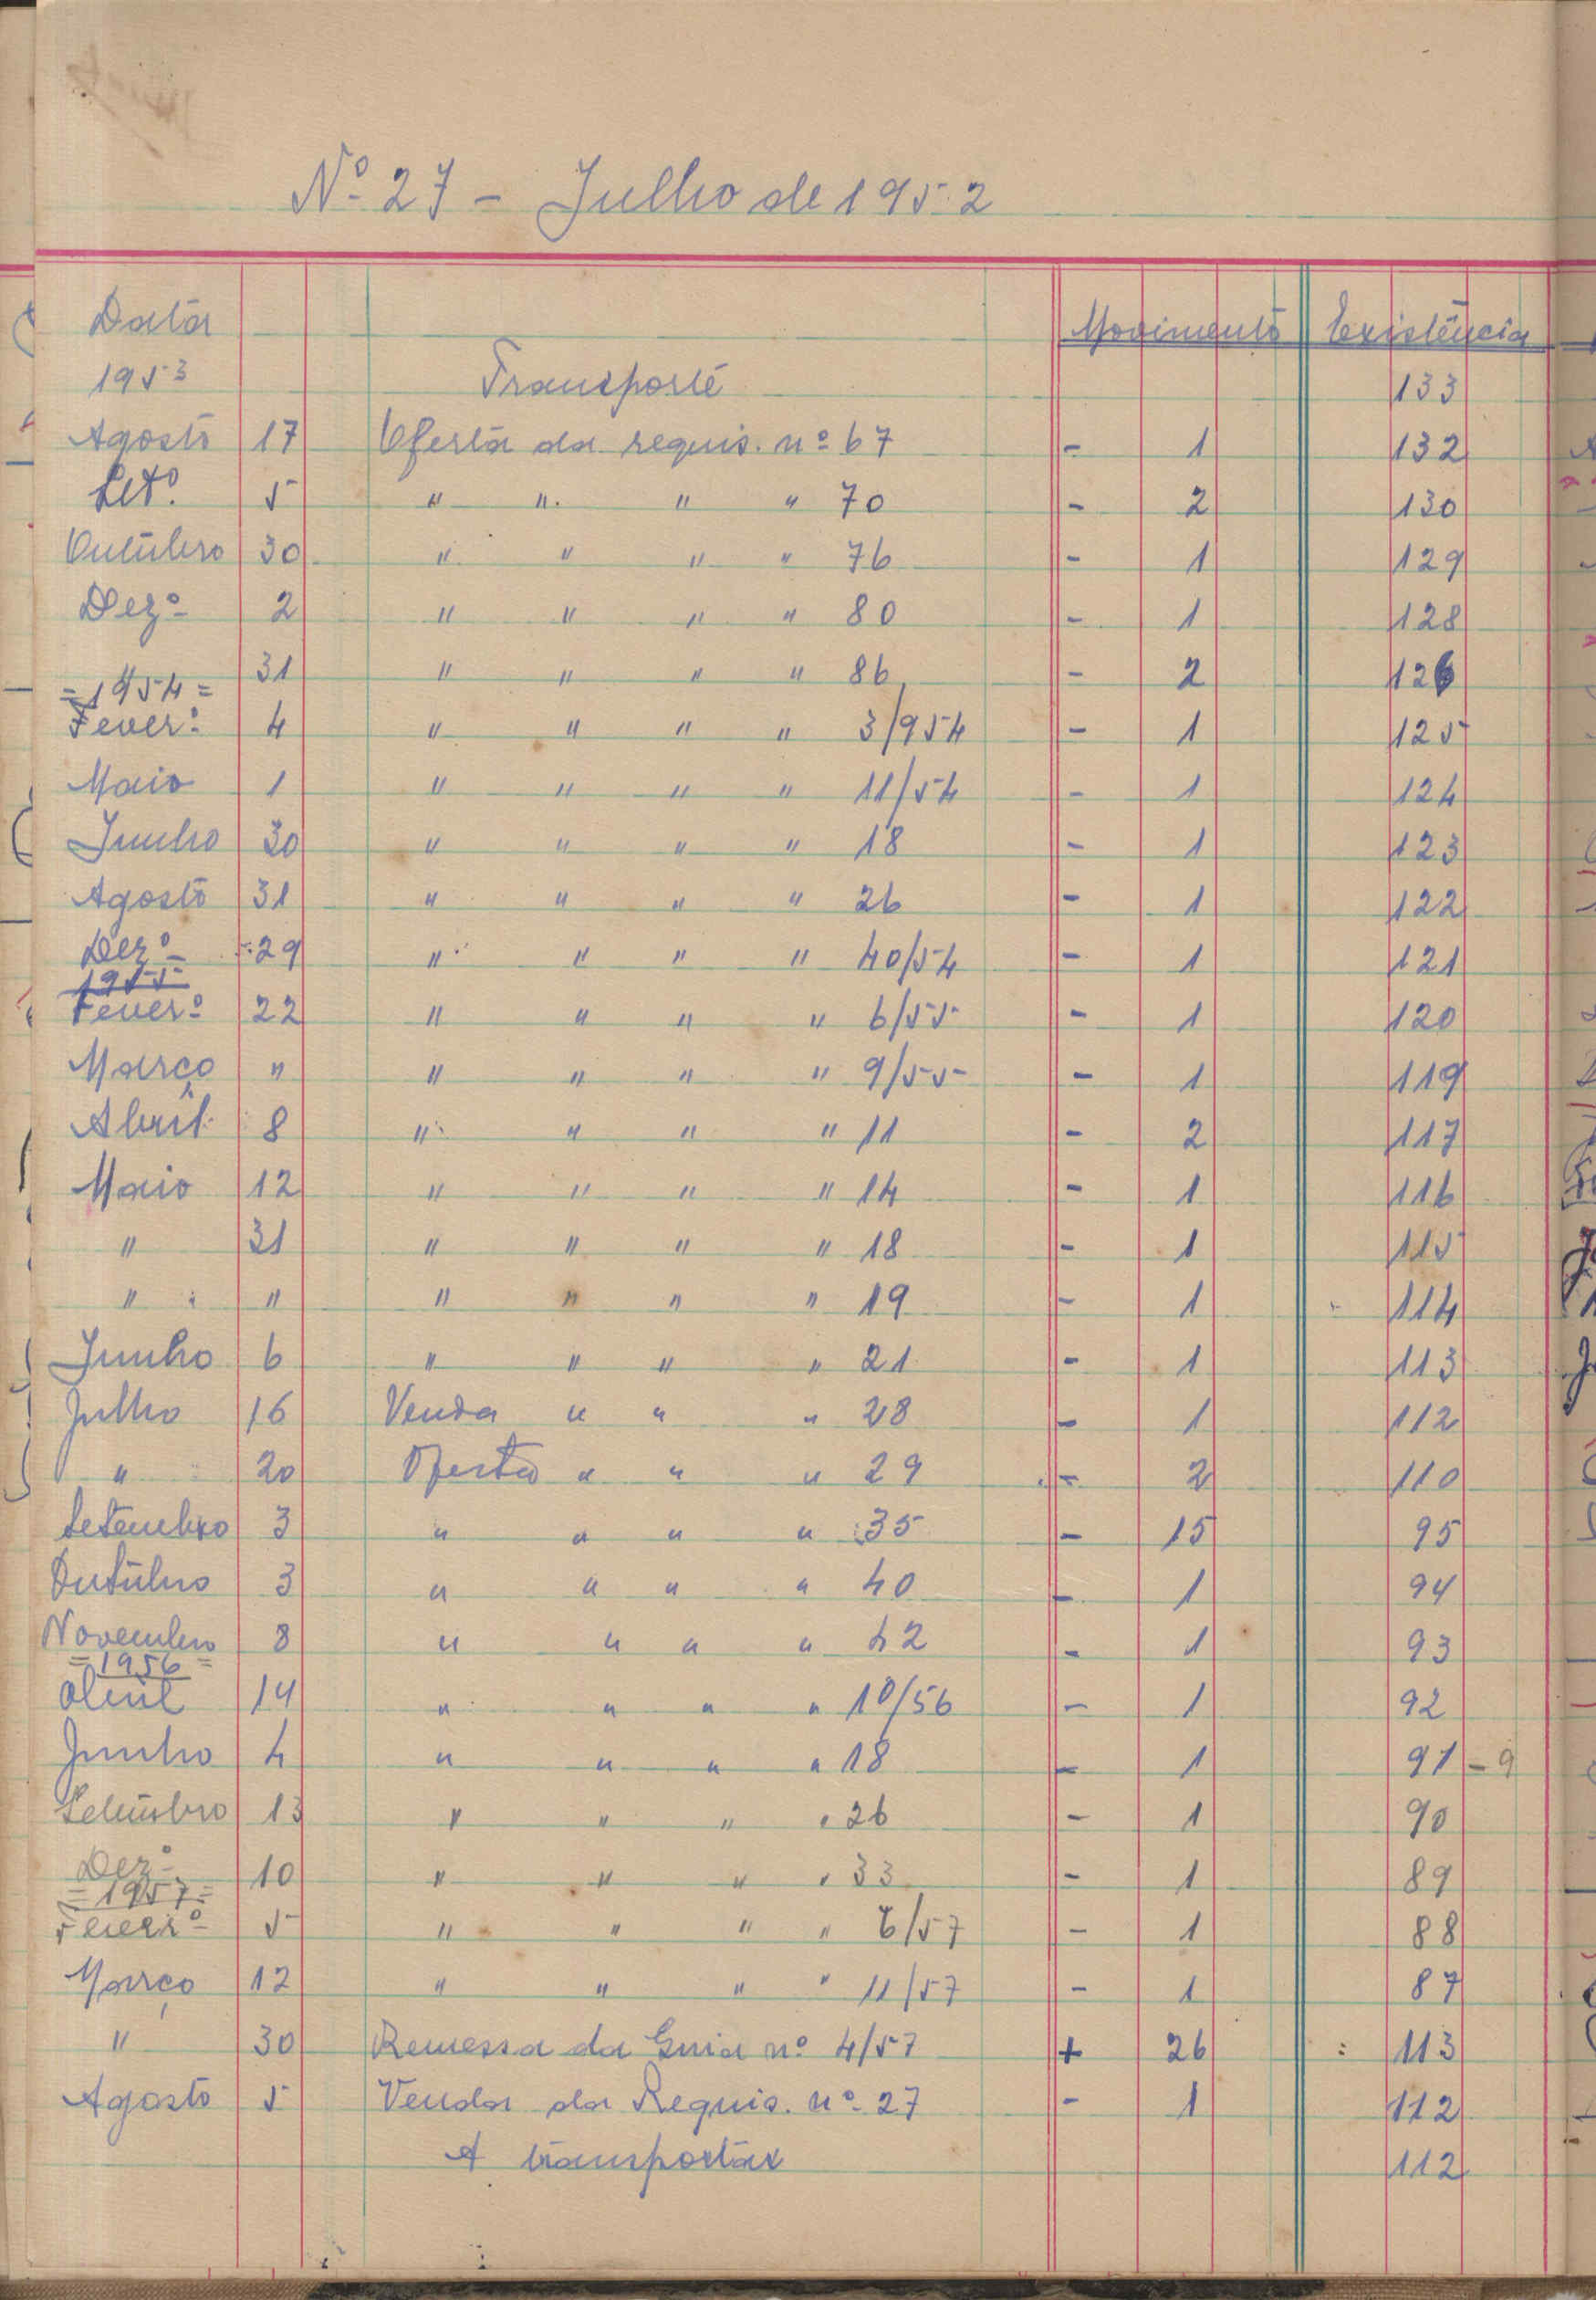 Nº 27 - Julho de 1952
Data Movimento Existência
1953 Transporte 133
Agosto 17 Oferta da requis. nº 67 - 1 132
Set.º 5 " " " " 70 - 2 130
Outubro 30 " " " " 76 - 1 129
Dezº 2 " " " " 80 - 1 128
31 " " " " 86 - 2 126
= 1954 =
Feverº 4 " " " " 3/954 - 1 125
Maio 1 " " " " 11/54 - 1 124
Junho 30 " " " " 18 - 1 123
Agosto 31 " " " " 26 - 1 122
Dezº 29 " " " " 40/54 - 1 121
1955
Feverº 22 " " " " 6/55 - 1 120
Março " " " " " 9/55 - 1 119
Abril 8 " " " " 11 - 2 117
Maio 12 " " " " 14 - 1 116
" 31 " " " " 18 - 1 115
" " " " " " 19 - 1 114
Junho 6 " " " " 21 - 1 113
Julho 16 Venda " " " 28 - 1 112
" 20 Oferta " " " 29 - 2 110
Setembro 3 " " " " 35 - 15 95
Outubro 3 " " " " 40 - 1 94
Novembro 8 " " " " 42 - 1 93
= 1956 =
Abril 14 " " " " 10/56 - 1 92
Junho 4 " " " " 18 - 1 91 - 9
Setembro 13 " " " " 26 - 1 90
Dezº 10 " " " " 33 - 1 89
= 1957 =
Feverº 5 " " " " 6/57 - 1 88
Março 12 " " " " 11/57 - 1 87
" 30 Remessa da Guia nº 4/57 + 26 113
Agosto 5 Venda da Requis. nº 27 - 1 112
A transportar 112